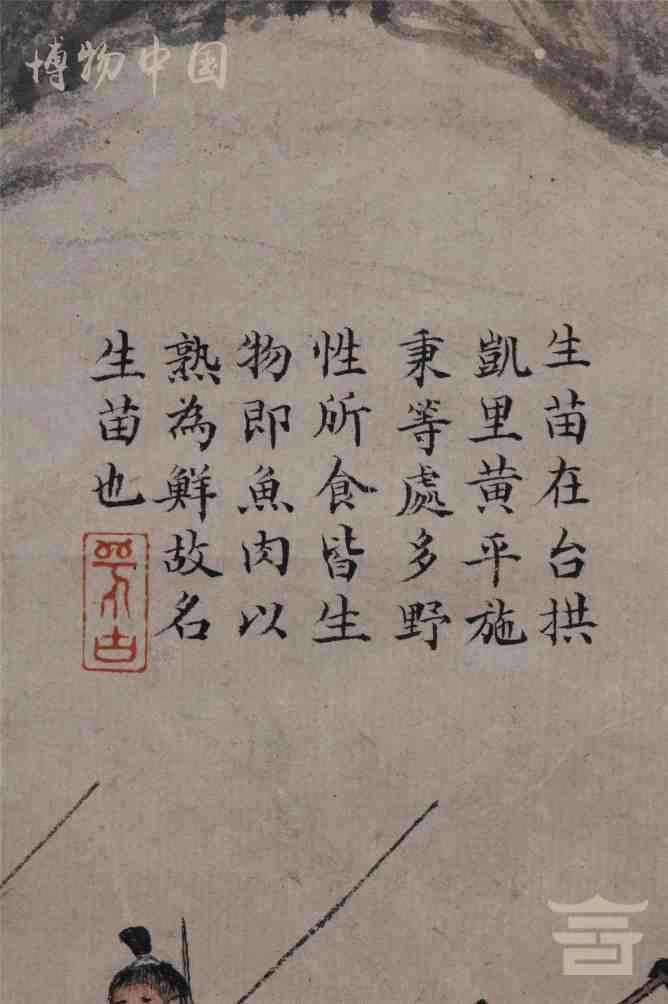 博物中国
生苗在台拱
凱里黃平施
秉等處多野
性所食皆生
物即魚肉以
熟為鮮故名
生苗也